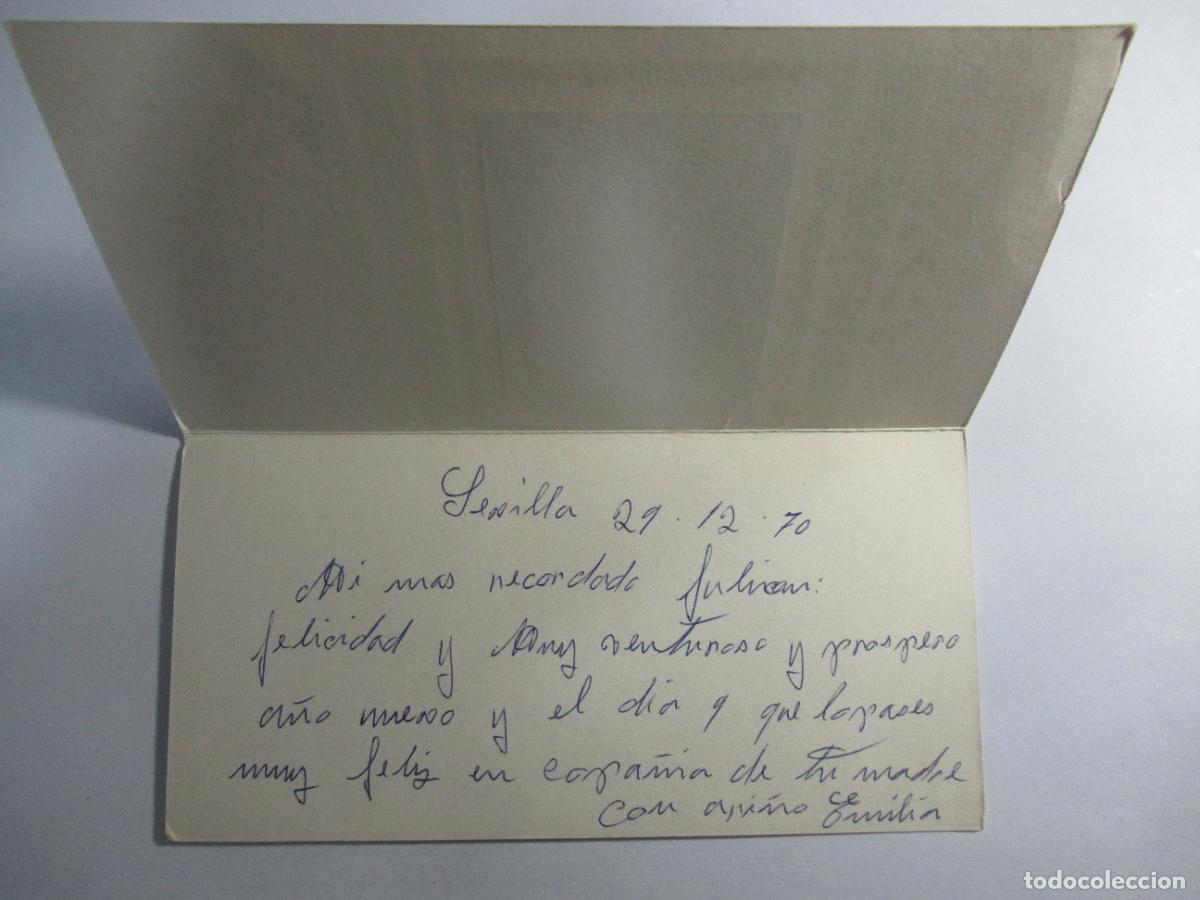 Sevilla 29.12.70
Mi mas recordado Julian:
felicidad y Muy venturoso y prospero
año nuevo y el dia 9 que lo pases
muy feliz en copañia de tu madre
con cariño Emilia
todocoleccion